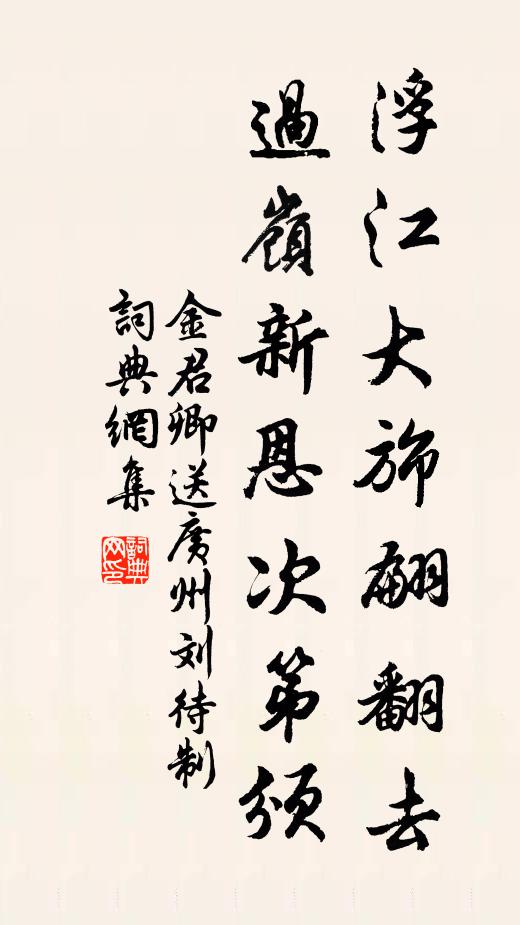 浮江大斾翩翻去
過嶺新恩次第頒
金君卿送廣州刘待制
詞典網集
詞典网印